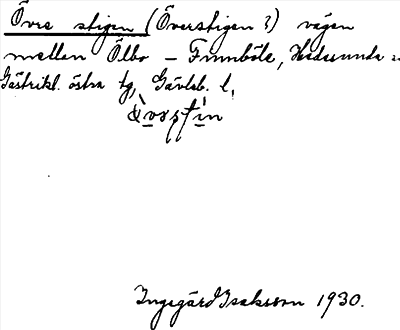 Övre stigen (Överstigen?) vägen
mellan Ölbo – Finnböle, Hedesunda s:n
Gästrikl. östra tg, Gävleb. l.
Ingegärd Isaksson 1930.